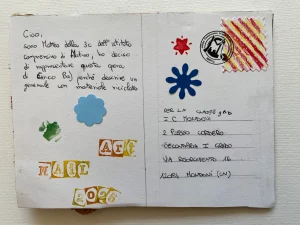 Ciao,
sono Matteo della 3C dell'istituto
comprensivo di
ho deciso
di rappresentare questa opera
di Enrico Baj perché descrive un
generale con materiale riciclato
Art
MAIL
PER LA CLASSE
I C MONDOVÌ
2 PIAZZO CORDERO
SECONDARIA I GRADO
VIA RISORGIMENTO 14
12084 MONDOVÌ (CN)